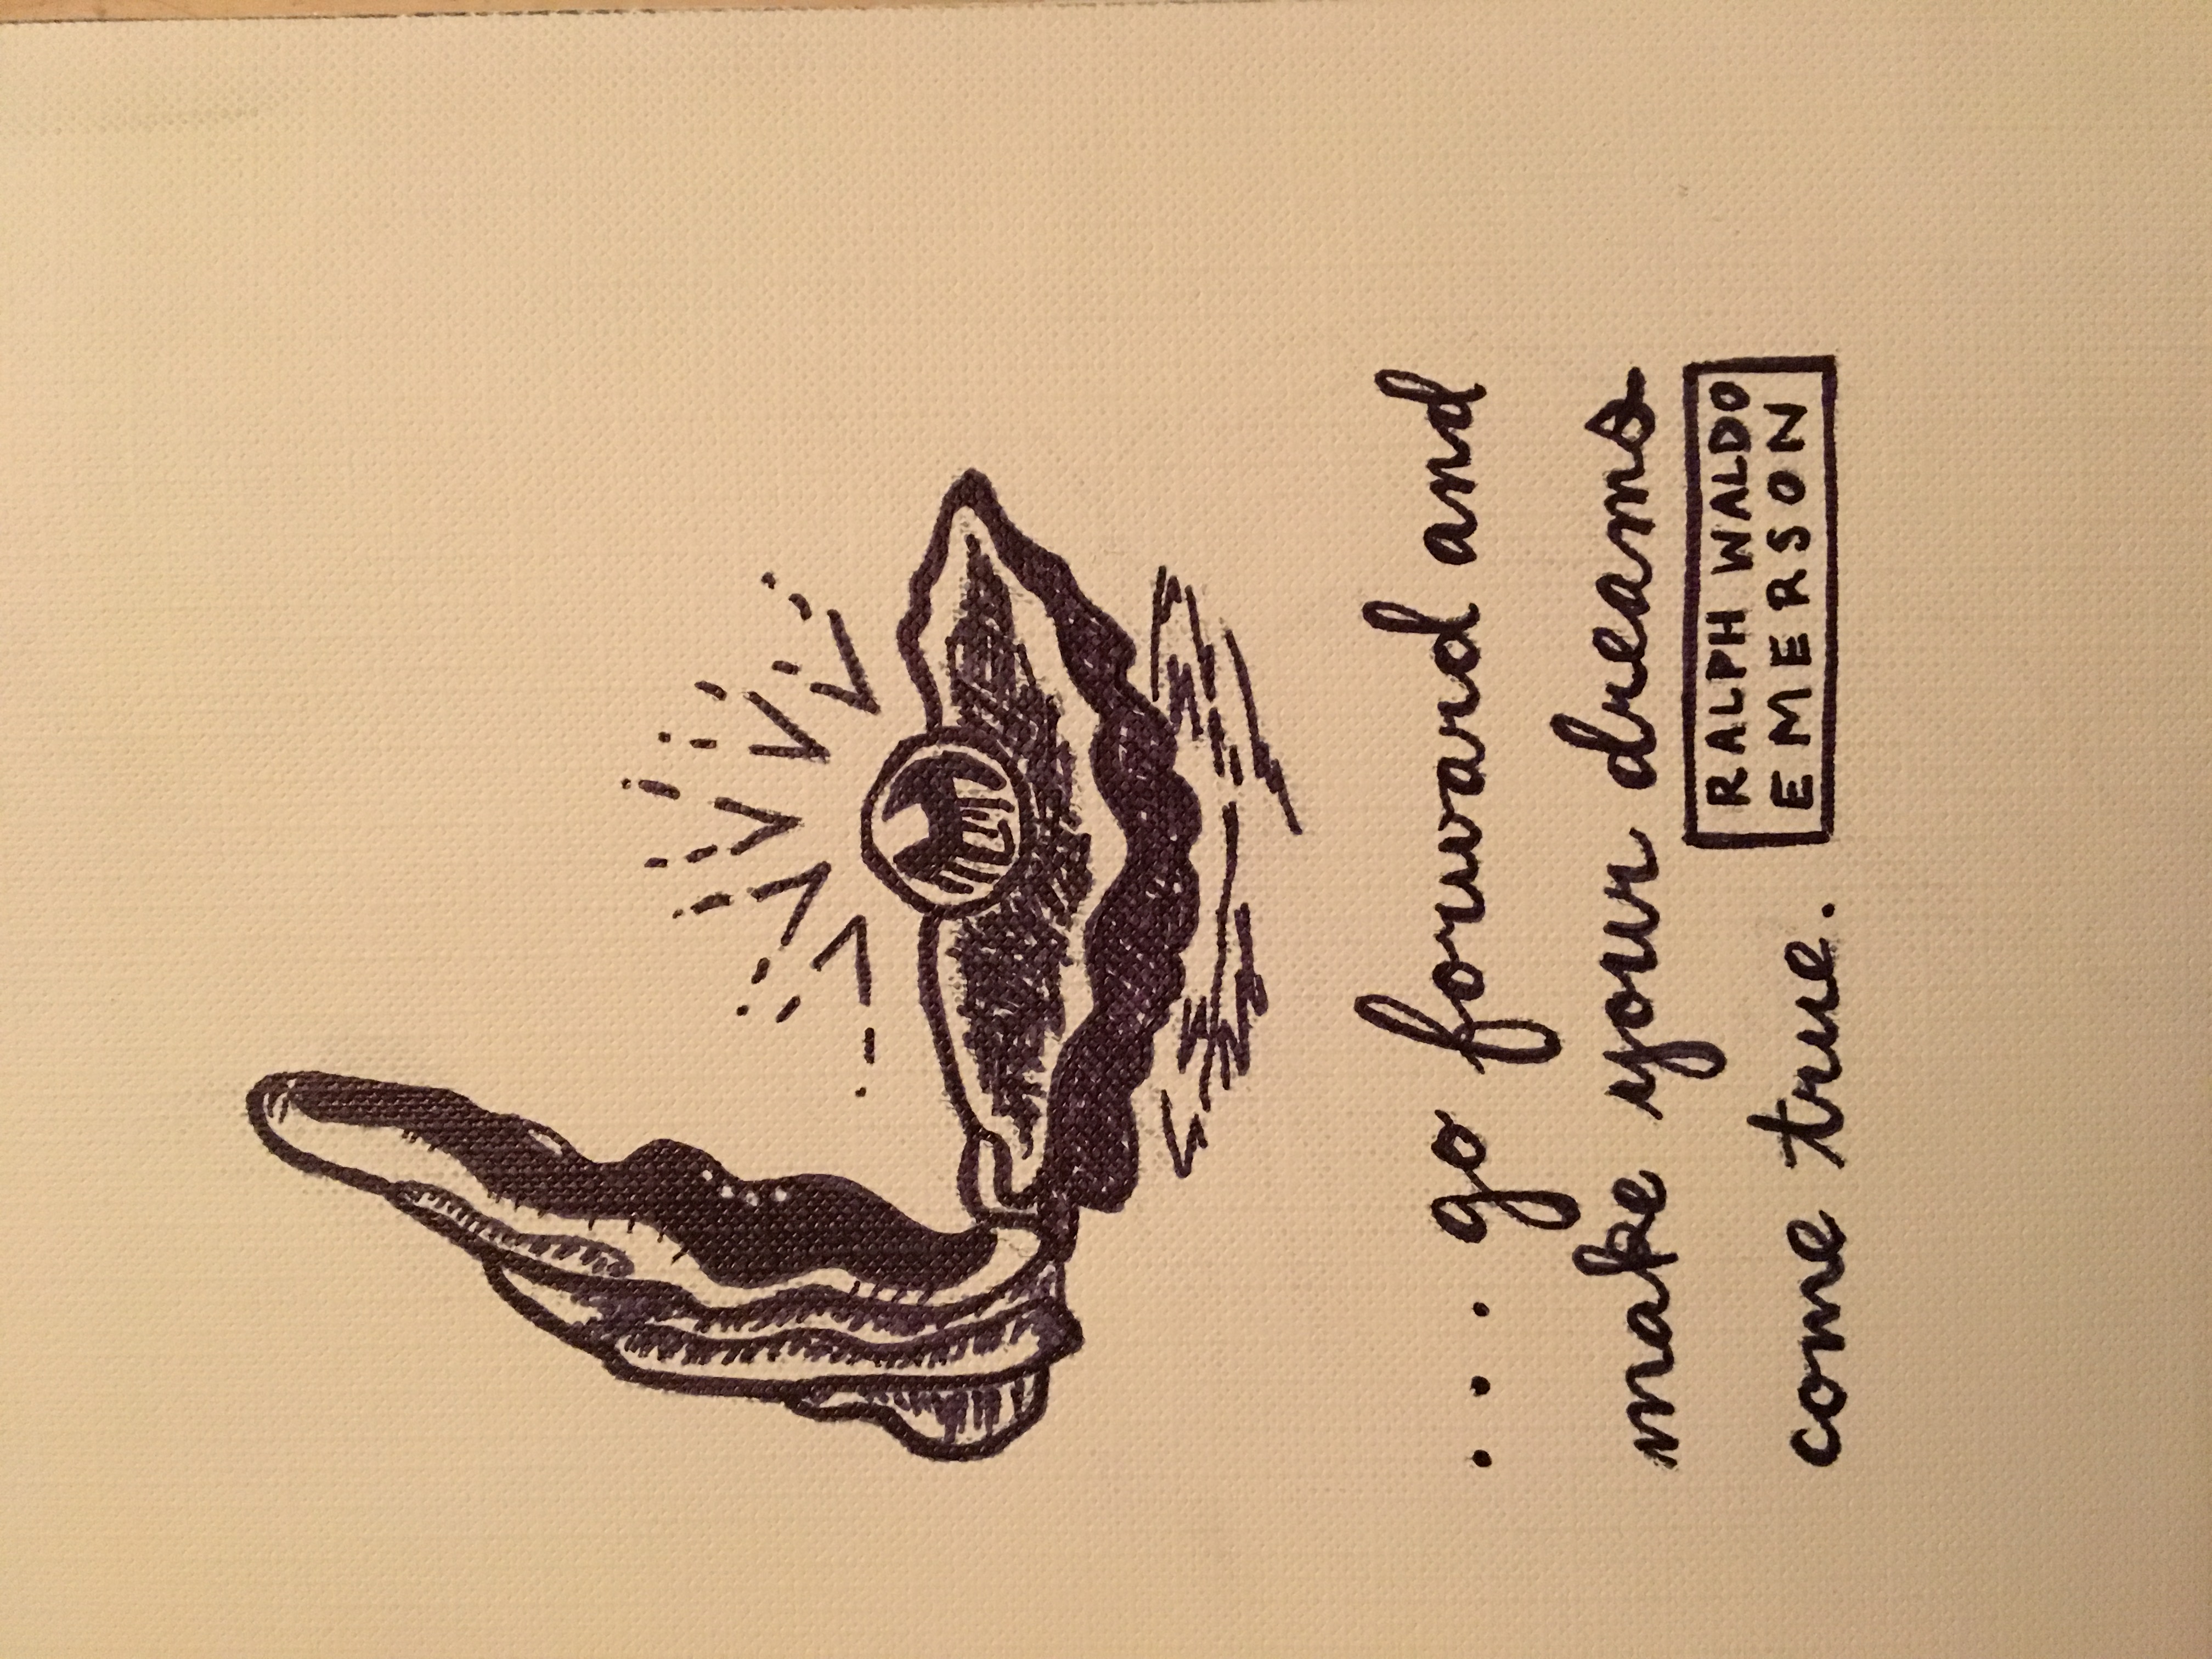 . . . go forward and
make your dreams
come true.
RALPH WALDO
EMERSON